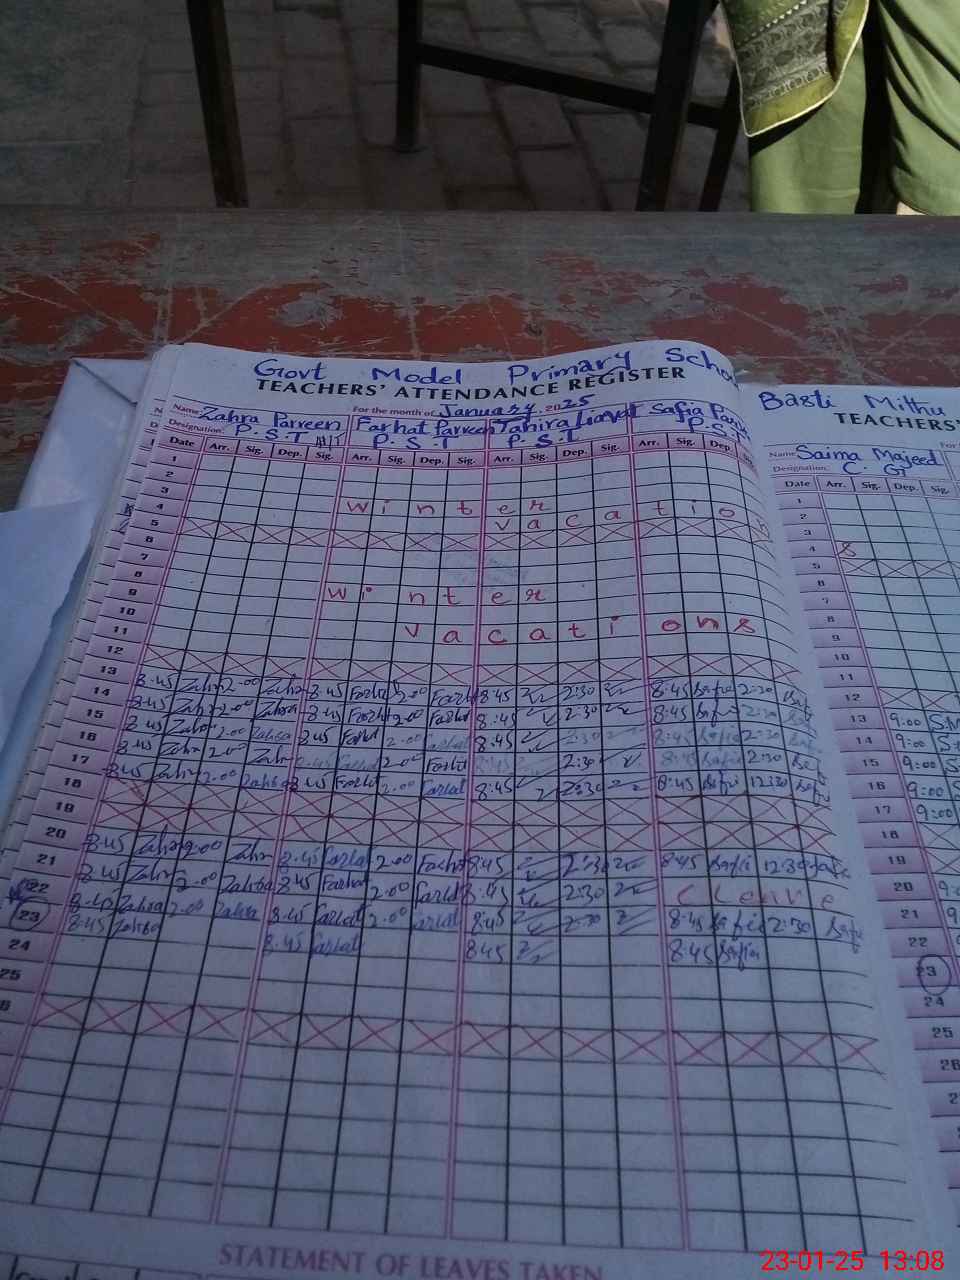 Govt Model Primary School
TEACHERS' ATTENDANCE REGISTER
For the month of January 2025
Name Zahra Parveen Farhat Parveen Tahira Liaqat Safia
Designation: P.S.T P.S.T P.S.T P.S.T
Date Arr. Sig. Dep. Sig. Arr. Sig. Dep. Sig. Arr. Sig. Dep. Sig. Arr. Sig. Dep. Sig.
1
2
3
4 winter
5 vacation
6
7
8
9 winter
10
11 vacations
12
13 8:45 Zahra 2:00 Zahra 8:45 Farhat 2:00 Farhat 8:45 2:30 8:45 Safia 2:30
14 8:45 Zahra 2:00 Zahra 8:45 Farhat 2:00 Farhat 8:45 2:30 8:45 Safia 2:30
15 8:45 Zahra 2:00 Zahra 8:45 Farhat 2:00 Farhat 8:45 2:30 8:45 Safia 2:30
16 8:45 Zahra 2:00 Zahra 8:45 Farhat 2:00 Farhat 8:45 2:30 8:45 Safia 2:30
17 8:45 Zahra 2:00 Zahra 8:45 Farhat 2:00 Farhat 8:45 2:30 8:45 Safia 12:30
18
19
20 8:45 Zahra 2:00 Zahra 8:45 Farhat 2:00 Farhat 8:45 2:30 8:45 Safia 12:30
21 8:45 Zahra 2:00 Zahra 8:45 Farhat 2:00 Farhat 8:45 2:30 C Leave
22 8:45 Zahra 2:00 Zahra 8:45 Farhat 2:00 Farhat 8:45 2:30 8:45 Safia 2:30
23 8:45 Zahra 8:45 Farhat 8:45 8:45 Safia
24
25
STATEMENT OF LEAVES TAKEN
Basti Mithu
TEACHERS
Name Saima Majeed
Designation: C.G
Date Arr. Sig. Dep. Sig.
1
2
3
4 8
5
6
7
8
9
10
11
12
13 9:00 S.M
14 9:00
15 9:00
16 9:00
17 9:00
18
19
20
21
22
23
24
25
26
23-01-25 13:08